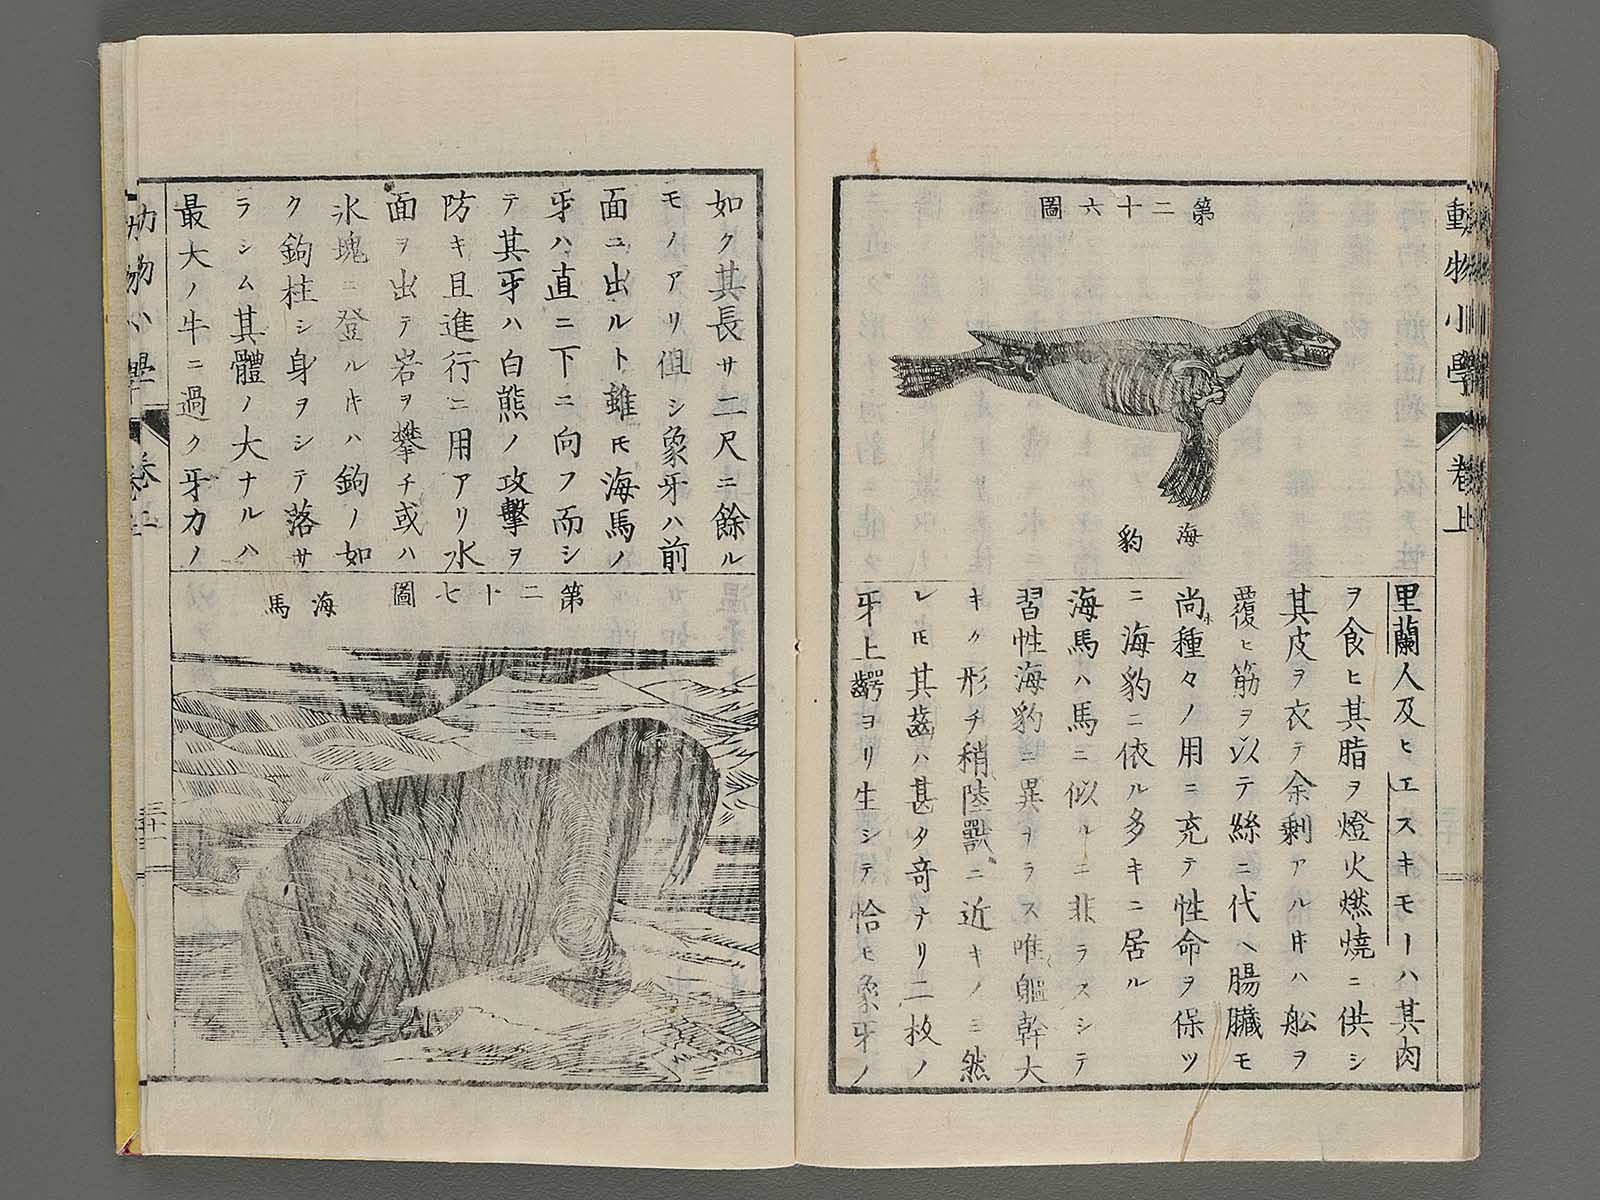 動物小學 卷上
第二十六圖
海豹
里蘭人及ヒエスキモーハ其肉
ヲ食ヒ其脂ヲ燈火燃燒ニ供シ
其皮ヲ衣テ余剩アルヰハ舩ヲ
覆ヒ筋ヲ以テ絲ニ代ヘ腸臟モ
尚種々ノ用ニ充テ性命ヲ保ツ
ニ海豹ニ依ル多キニ居ル
海馬ハ馬ニ似ルニ非ラスシテ
習性海豹ニ異ヲラス唯軀幹大
キク形チ稍陸獸ニ近キノミ然
レ𪜈其齒ハ甚タ奇ナリ二枚ノ
牙上齶ヨリ生シテ恰モ象牙ノ
如ク其長サ二尺ニ餘ル
モノアリ但シ象牙ハ前
面ニ出ルト雖𪜈海馬ノ
牙ハ直ニ下ニ向フ而シ
テ其牙ハ白熊ノ攻擊ヲ
防キ且進行ニ用アリ水
面ヲ出テ岩ヲ攀チ或ハ
氷塊ニ登ルキハ鉤ノ如
ク鉤柱シ身ヲシテ落サ
ラシム其體ノ大ナルハ
最大ノ牛ニ過ク牙カノ
第二十七圖
海馬
三十一